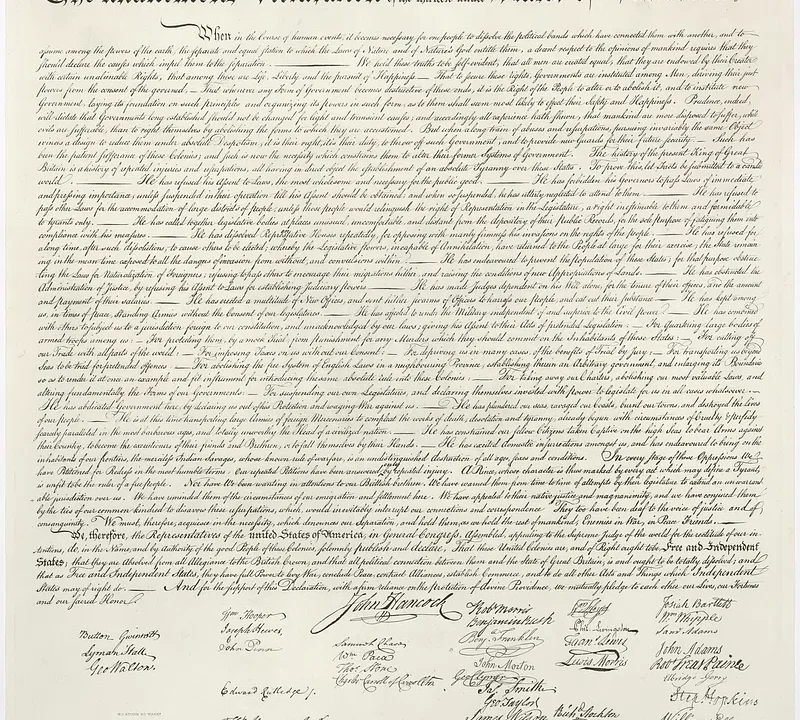 of the thirteen united
When in the Course of human events, it becomes necessary for one people to dissolve the political bands which have connected them with another, and to
assume among the powers of the earth, the separate and equal station to which the Laws of Nature and of Nature's God entitle them, a decent respect to the opinions of mankind requires that they
should declare the causes which impel them to the separation. — We hold these truths to be self-evident, that all men are created equal, that they are endowed by their Creator
with certain unalienable Rights, that among these are Life, Liberty and the pursuit of Happiness. — That to secure these rights, Governments are instituted among Men, deriving their just
powers from the consent of the governed, — That whenever any Form of Government becomes destructive of these ends, it is the Right of the People to alter or to abolish it, and to institute new
Government, laying its foundation on such principles and organizing its powers in such form, as to them shall seem most likely to effect their Safety and Happiness. Prudence, indeed,
will dictate that Governments long established should not be changed for light and transient causes; and accordingly all experience hath shewn, that mankind are more disposed to suffer, while
evils are sufferable, than to right themselves by abolishing the forms to which they are accustomed. But when a long train of abuses and usurpations, pursuing invariably the same Object
evinces a design to reduce them under absolute Despotism, it is their right, it is their duty, to throw off such Government, and to provide new Guards for their future security. — Such has
been the patient sufferance of these Colonies; and such is now the necessity which constrains them to alter their former Systems of Government. The history of the present King of Great
Britain is a history of repeated injuries and usurpations, all having in direct object the establishment of an absolute Tyranny over these States. To prove this, let Facts be submitted to a candid
world. — He has refused his Assent to Laws, the most wholesome and necessary for the public good. — He has forbidden his Governors to pass Laws of immediate
and pressing importance, unless suspended in their operation till his Assent should be obtained; and when so suspended, he has utterly neglected to attend to them. — He has refused to
pass other Laws for the accommodation of large districts of people, unless those people would relinquish the right of Representation in the Legislature, a right inestimable to them and formidable
to tyrants only. — He has called together legislative bodies at places unusual, uncomfortable, and distant from the depository of their public Records, for the sole purpose of fatiguing them into
compliance with his measures. — He has dissolved Representative Houses repeatedly, for opposing with manly firmness his invasions on the rights of the people. — He has refused for
a long time, after such dissolutions, to cause others to be elected; whereby the Legislative powers, incapable of Annihilation, have returned to the People at large for their exercise; the State remain-
ing in the mean time exposed to all the dangers of invasion from without, and convulsions within. — He has endeavoured to prevent the population of these States; for that purpose obstruc-
ting the Laws for Naturalization of Foreigners; refusing to pass others to encourage their migrations hither, and raising the conditions of new Appropriations of Lands. — He has obstructed the
Administration of Justice, by refusing his Assent to Laws for establishing Judiciary powers. — He has made Judges dependent on his Will alone, for the tenure of their offices, and the amount
and payment of their salaries. — He has erected a multitude of New Offices, and sent hither swarms of Officers to harrass our people, and eat out their substance. — He has kept among
us, in times of peace, Standing Armies without the Consent of our legislatures. — He has affected to render the Military independent of and superior to the Civil power. — He has combined
with others to subject us to a jurisdiction foreign to our constitution, and unacknowledged by our laws; giving his Assent to their Acts of pretended Legislation: — For Quartering large bodies of
armed troops among us: — For protecting them, by a mock Trial, from punishment for any Murders which they should commit on the Inhabitants of these States: — For cutting off
our Trade with all parts of the world: — For imposing Taxes on us without our Consent: — For depriving us in many cases, of the benefits of Trial by Jury: — For transporting us beyond
Seas to be tried for pretended offences — For abolishing the free System of English Laws in a neighbouring Province, establishing therein an Arbitrary government, and enlarging its Boundaries
so as to render it at once an example and fit instrument for introducing the same absolute rule into these Colonies: — For taking away our Charters, abolishing our most valuable Laws, and
altering fundamentally the Forms of our Governments: — For suspending our own Legislatures, and declaring themselves invested with power to legislate for us in all cases whatsoever. —
He has abdicated Government here, by declaring us out of his Protection and waging War against us. — He has plundered our seas, ravaged our Coasts, burnt our towns, and destroyed the lives
of our people. — He is at this time transporting large Armies of foreign Mercenaries to compleat the works of death, desolation and tyranny, already begun with circumstances of Cruelty & perfidy
scarcely paralleled in the most barbarous ages, and totally unworthy the Head of a civilized nation. — He has constrained our fellow Citizens taken Captive on the high Seas to bear Arms against
their Country, to become the executioners of their friends and Brethren, or to fall themselves by their Hands. — He has excited domestic insurrections amongst us, and has endeavoured to bring on the
inhabitants of our frontiers, the merciless Indian Savages, whose known rule of warfare, is an undistinguished destruction of all ages, sexes and conditions. In every stage of these Oppressions We
have Petitioned for Redress in the most humble terms: Our repeated Petitions have been answered only by repeated injury. A Prince, whose character is thus marked by every act which may define a Tyrant,
is unfit to be the ruler of a free people. Nor have We been wanting in attentions to our Brittish brethren. We have warned them from time to time of attempts by their legislature to extend an unwarrant-
able jurisdiction over us. We have reminded them of the circumstances of our emigration and settlement here. We have appealed to their native justice and magnanimity, and we have conjured them
by the ties of our common kindred to disavow these usurpations, which, would inevitably interrupt our connections and correspondence. They too have been deaf to the voice of justice and of
consanguinity. We must, therefore, acquiesce in the necessity, which denounces our Separation, and hold them, as we hold the rest of mankind, Enemies in War, in Peace Friends. —
We, therefore, the Representatives of the united States of America, in General Congress, Assembled, appealing to the Supreme Judge of the world for the rectitude of our in-
tentions, do, in the Name, and by Authority of the good People of these Colonies, solemnly publish and declare, That these United Colonies are, and of Right ought to be Free and Independent
States; that they are Absolved from all Allegiance to the British Crown, and that all political connection between them and the State of Great Britain, is and ought to be totally dissolved; and
that as Free and Independent States, they have full Power to levy War, conclude Peace, contract Alliances, establish Commerce, and to do all other Acts and Things which Independent
States may of right do. — And for the support of this Declaration, with a firm reliance on the Protection of divine Providence, we mutually pledge to each other our Lives, our Fortunes
and our sacred Honor.
Button Gwinnett
Lyman Hall
Geo Walton.
Wm Hooper
Joseph Hewes,
John Penn
Edward Rutledge /.
John Hancock
Samuel Chase
Wm. Paca
Thos. Stone
Charles Carroll of Carrollton
Robt Morris
Benjamin Rush
Benj. Franklin
John Morton
Geo Clymer
Jas. Smith
Geo. Taylor
James Wilson
Wm Floyd
Phil. Livingston
Frans. Lewis
Lewis Morris
Richd. Stockton
Josiah Bartlett
Wm. Whipple
Saml Adams
John Adams
Robt Treat Paine
Elbridge Gerry
Step. Hopkins